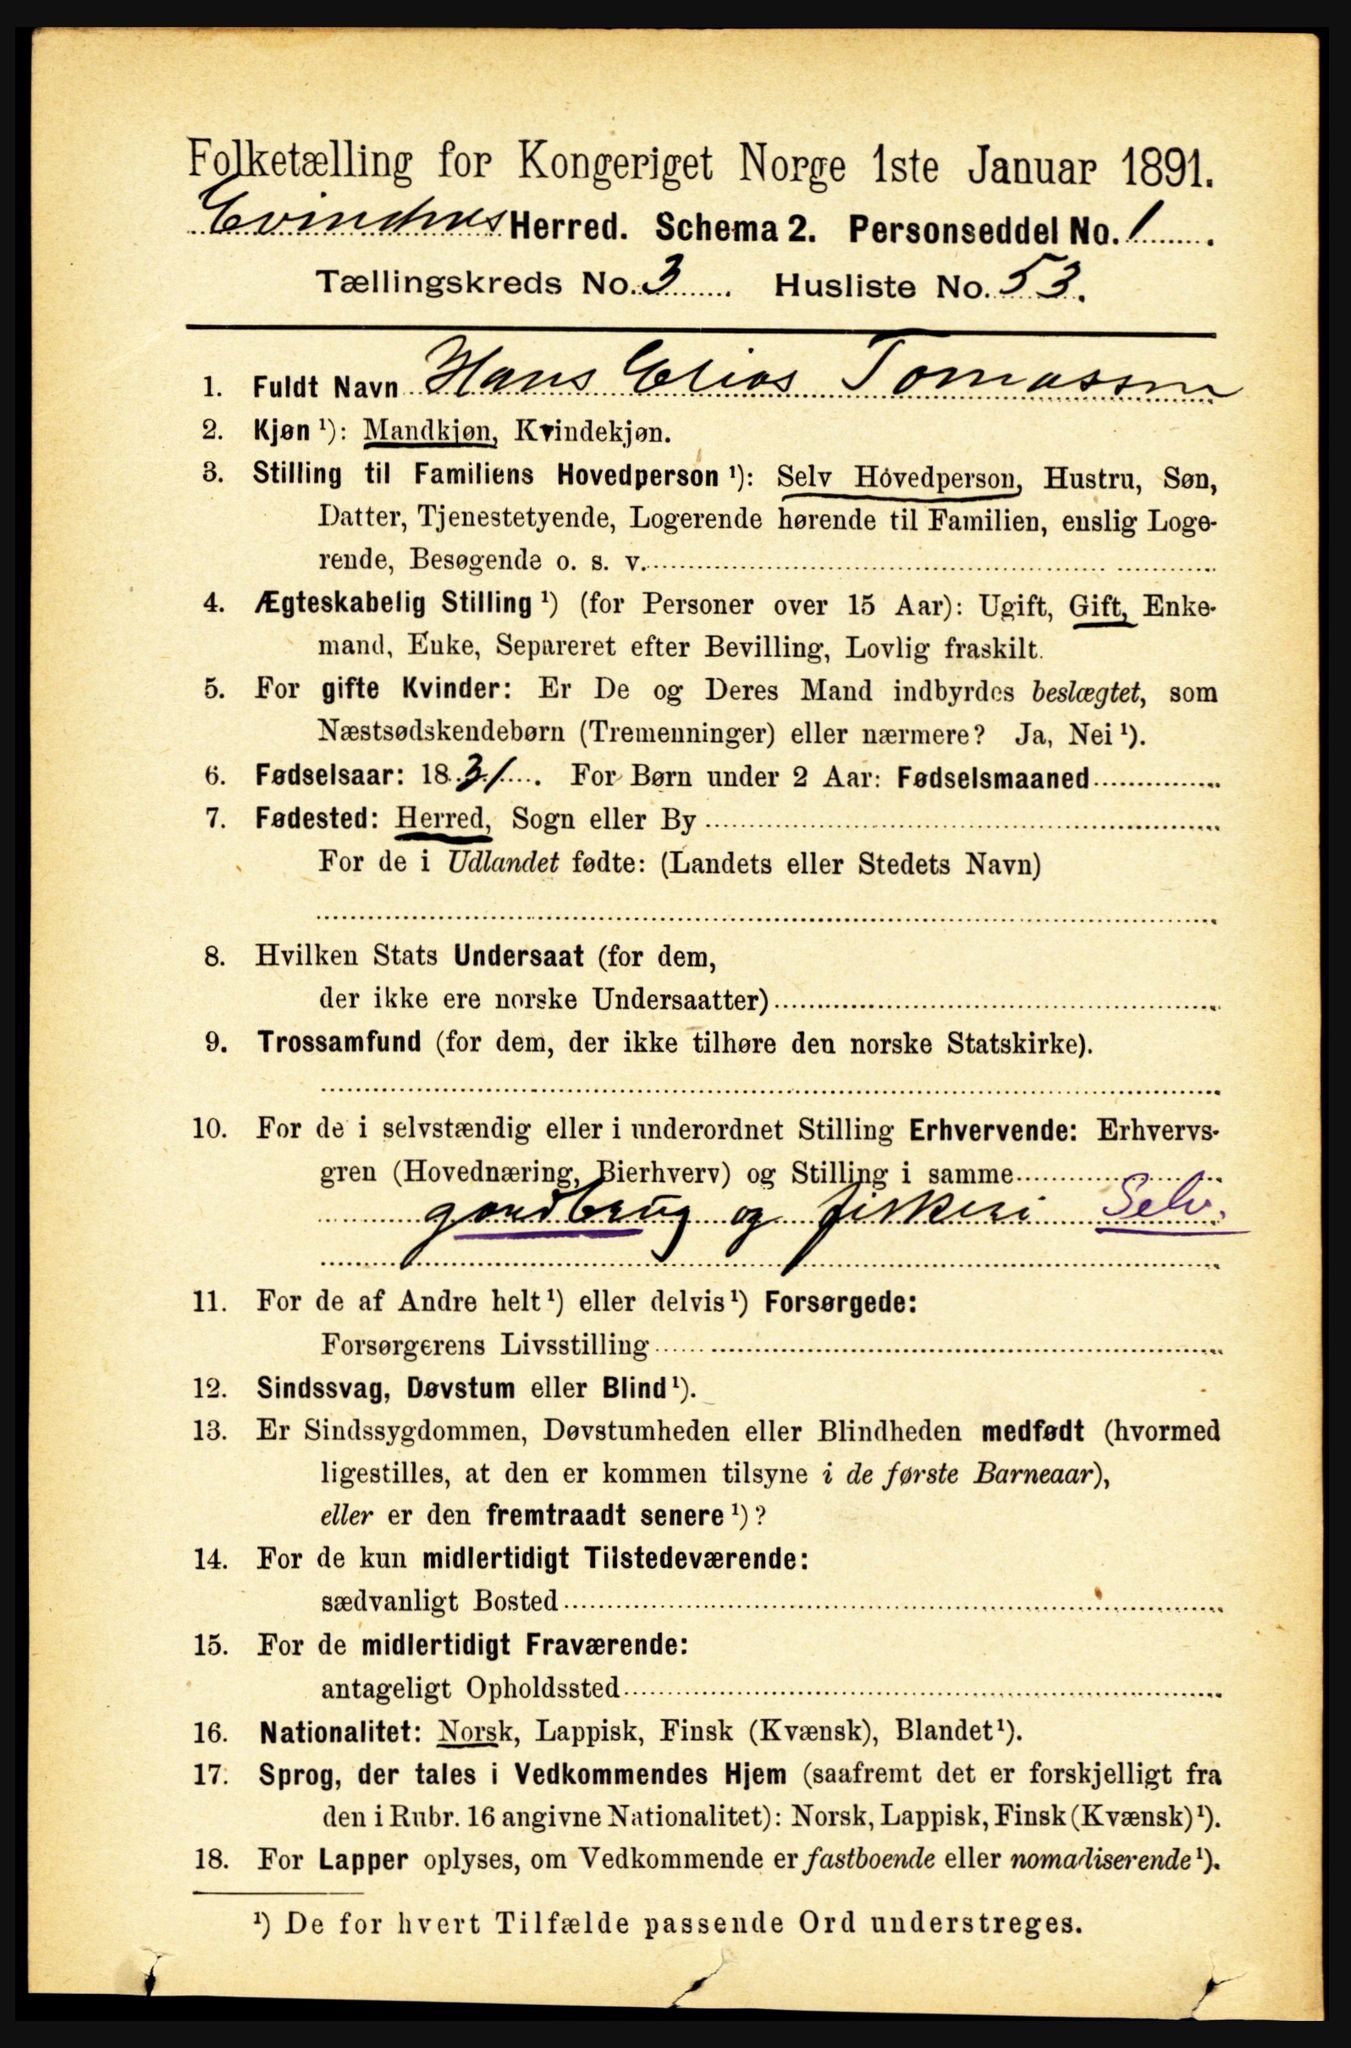 Folketælling for Kongeriget Norge 1ste Januar 1891.
Evindnes Herred. Schema 2. Personseddel No. 1.
Tællingskreds No. 3. Husliste No. 53.
1. Fuldt Navn Hans Elias Tomassen
2. Kjøn ¹): Mandkjøn, Kvindekjøn.
3. Stilling til Familiens Hovedperson ¹): Selv Hovedperson, Hustru, Søn,
Datter, Tjenestetyende, Logerende hørende til Familien, enslig Loge-
rende, Besøgende o. s. v.
4. Ægteskabelig Stilling ¹) (for Personer over 15 Aar): Ugift, Gift, Enke-
mand, Enke, Separeret efter Bevilling, Lovlig fraskilt.
5. For gifte Kvinder: Er De og Deres Mand indbyrdes beslægtet, som
Næstsødskendebørn (Tremenninger) eller nærmere? Ja, Nei ¹).
6. Fødselsaar: 1831. For Børn under 2 Aar: Fødselsmaaned
7. Fødested: Herred, Sogn eller By
For de i Udlandet fødte: (Landets eller Stedets Navn)
8. Hvilken Stats Undersaat (for dem,
der ikke ere norske Undersaatter)
9. Trossamfund (for dem, der ikke tilhøre den norske Statskirke).
10. For de i selvstændig eller i underordnet Stilling Erhvervende: Erhvervs-
gren (Hovednæring, Bierhverv) og Stilling i samme
gardbrug og fiskeri Selv.
11. For de af Andre helt ¹) eller delvis ¹) Forsørgede:
Forsørgerens Livsstilling
12. Sindssvag, Døvstum eller Blind ¹).
13. Er Sindssygdommen, Døvstumheden eller Blindheden medfødt (hvormed
ligestilles, at den er kommen tilsyne i de første Barneaar),
eller er den fremtraadt senere ¹)?
14. For de kun midlertidigt Tilstedeværende:
sædvanligt Bosted
15. For de midlertidigt Fraværende:
antageligt Opholdssted
16. Nationalitet: Norsk, Lappisk, Finsk (Kvænsk), Blandet ¹).
17. Sprog, der tales i Vedkommendes Hjem (saafremt det er forskjelligt fra
den i Rubr. 16 angivne Nationalitet): Norsk, Lappisk, Finsk (Kvænsk) ¹).
18. For Lapper oplyses, om Vedkommende er fastboende eller nomadiserende ¹).
¹) De for hvert Tilfælde passende Ord understreges.